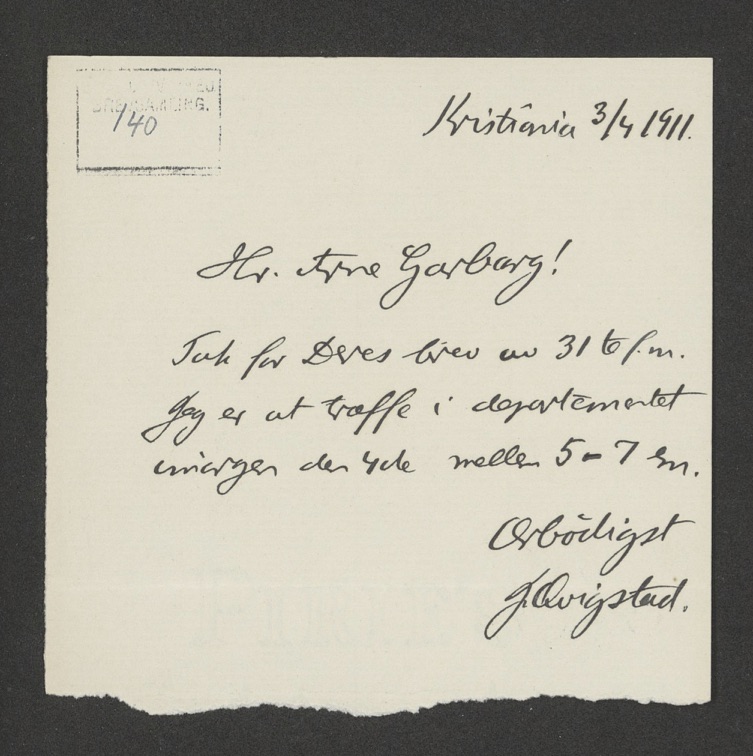 BREVSAMLING.
140
Kristiania 3/4 1911.
Hr. Arne Garborg!
Tak for Deres brev av 31te f.m.
Jeg er at træffe i departementet
imorgen den 4de mellem 5-7 em.
Ærbödigst
J. Qvigstad.